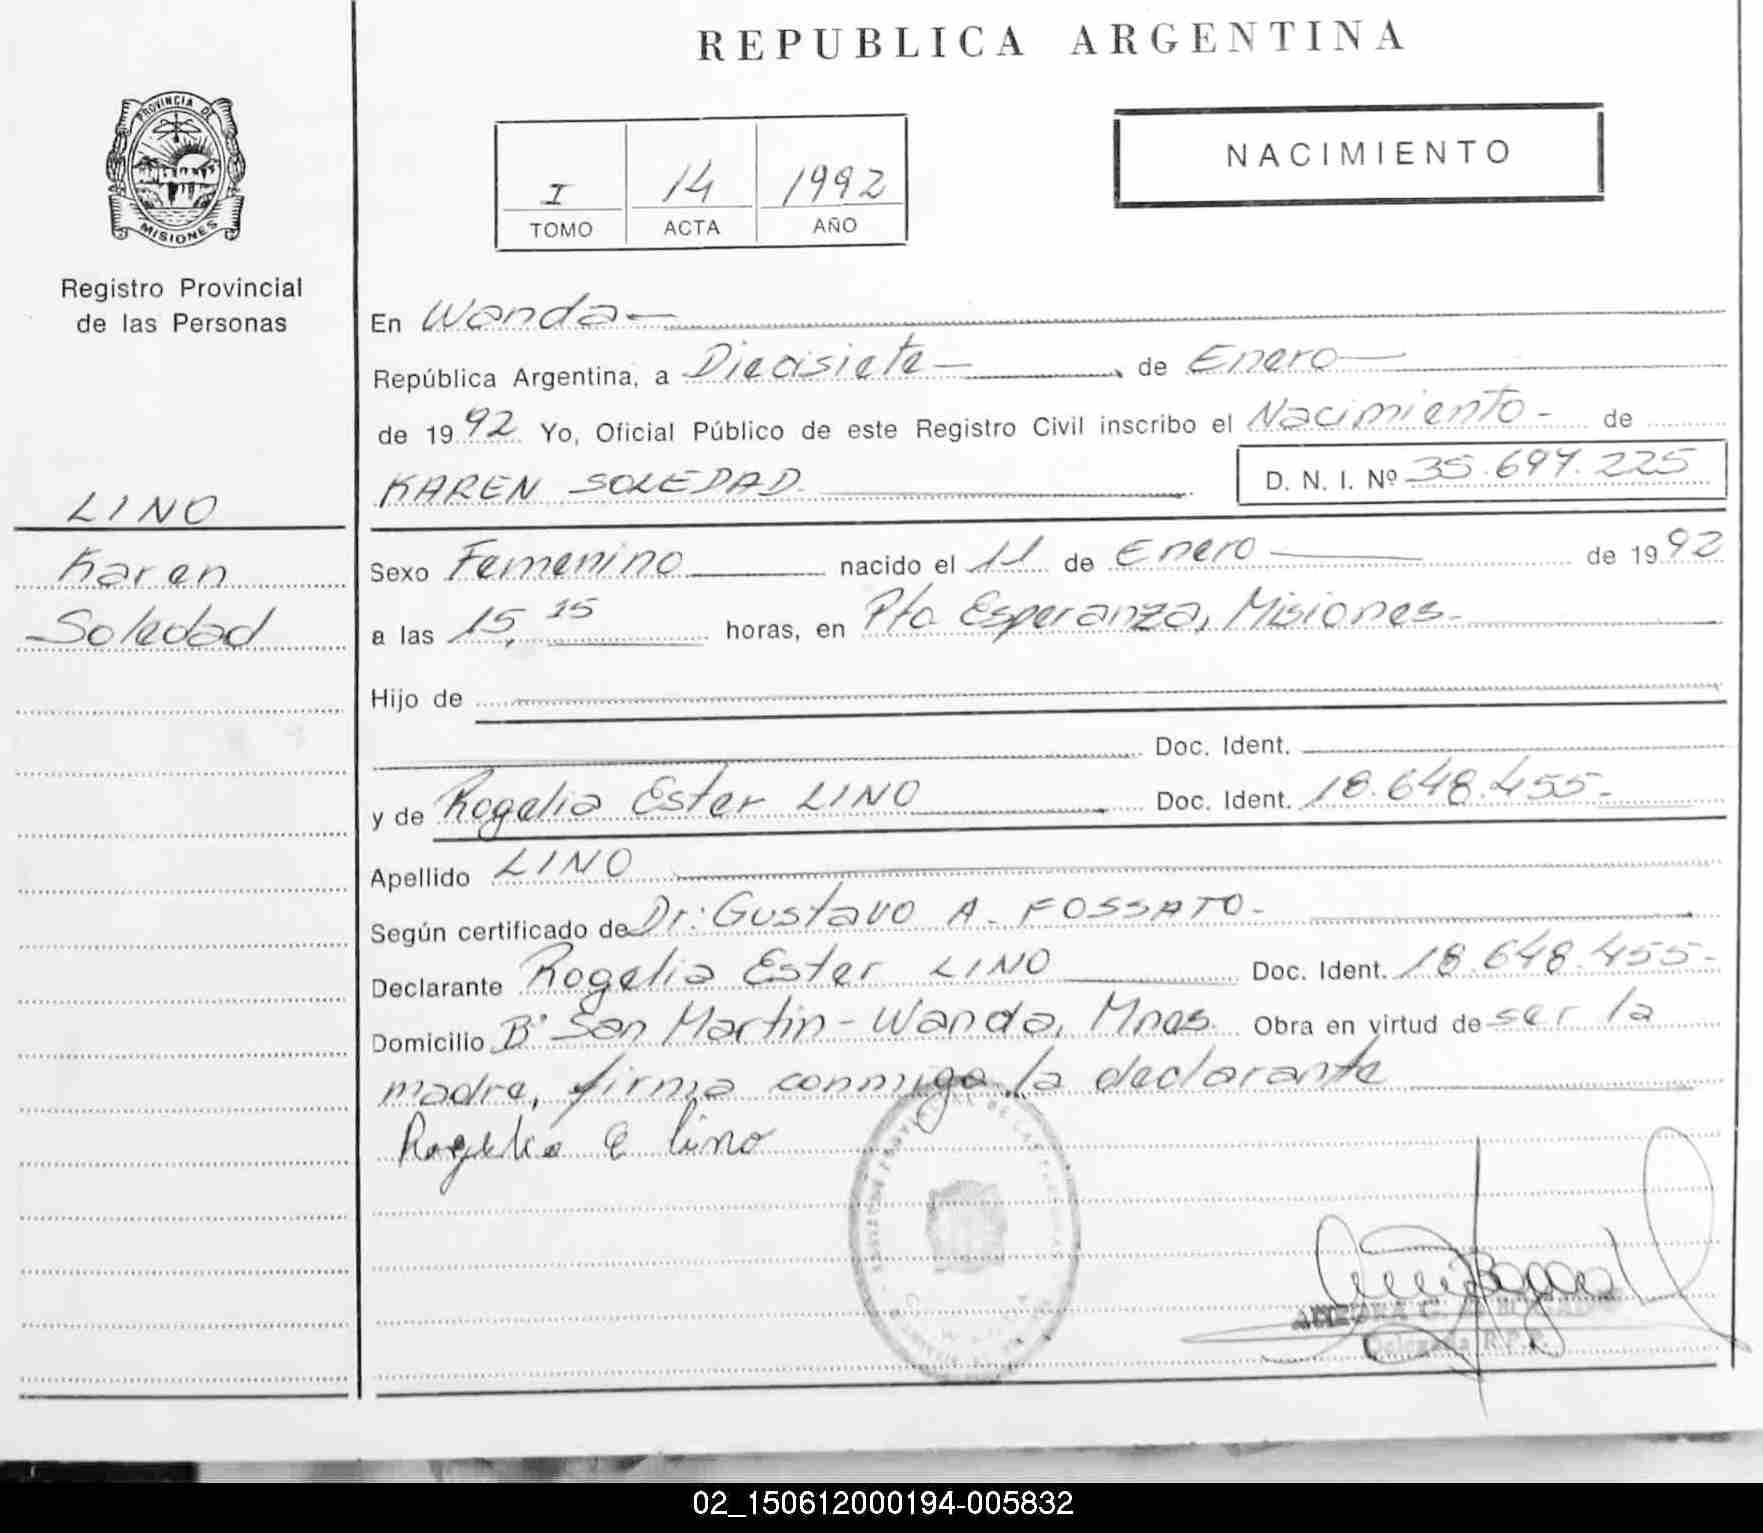 REPUBLICA ARGENTINA
PROVINCIA DE
MISIONES
Registro Provincial
de las Personas
I 14 1992
TOMO ACTA AÑO
NACIMIENTO
En Wanda-
República Argentina, a Diecisiete- de Enero-
de 1992 Yo, Oficial Público de este Registro Civil inscribo el Nacimiento- de
KAREN SOLEDAD D. N. I. Nº 35.697.225
LINO
Karen
Soledad
Sexo Femenino nacido el 11 de Enero de 1992
a las 15,15 horas, en Pto Esperanza, Misiones-
Hijo de
Doc. Ident.
y de Rogelia Ester LINO Doc. Ident. 18.648.455-
Apellido LINO
Según certificado de Dr: Gustavo A. FOSSATO-
Declarante Rogelia Ester LINO Doc. Ident. 18.648.455-
Domicilio Bº San Martin-Wanda, Mnes. Obra en virtud de ser la
madre, firma conmigo la declarante
Rogelia E lino
02_150612000194-005832